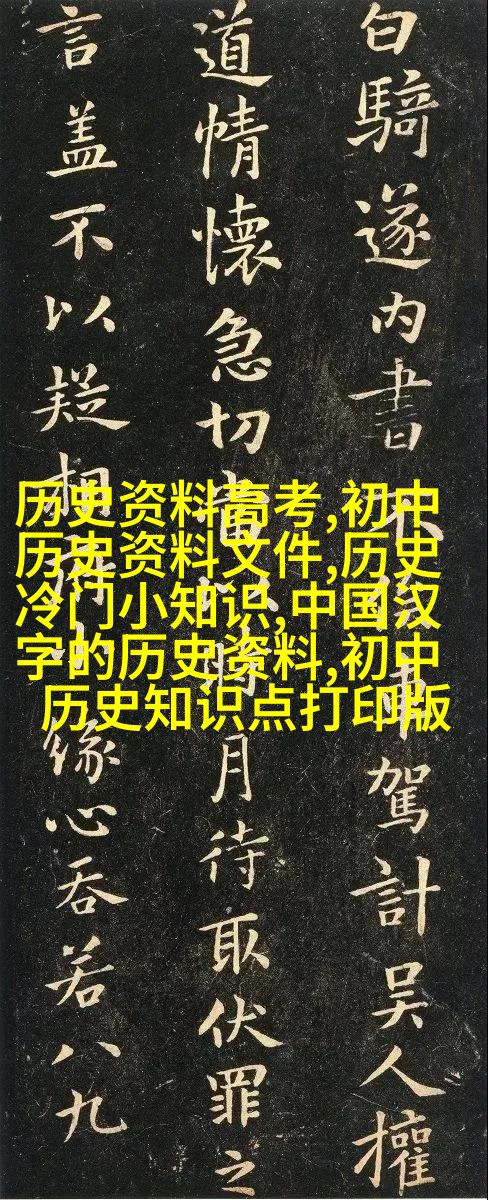 历史资料高考,初中
历史资料文件,历史
冷门小知识,中国汉
字的历史资料,初中
历史知识点打印版
白騎遂内書不駕計吴人權
道情懷急切當以時月待取伏罪之
言盖不以疑相緣心吞若八九